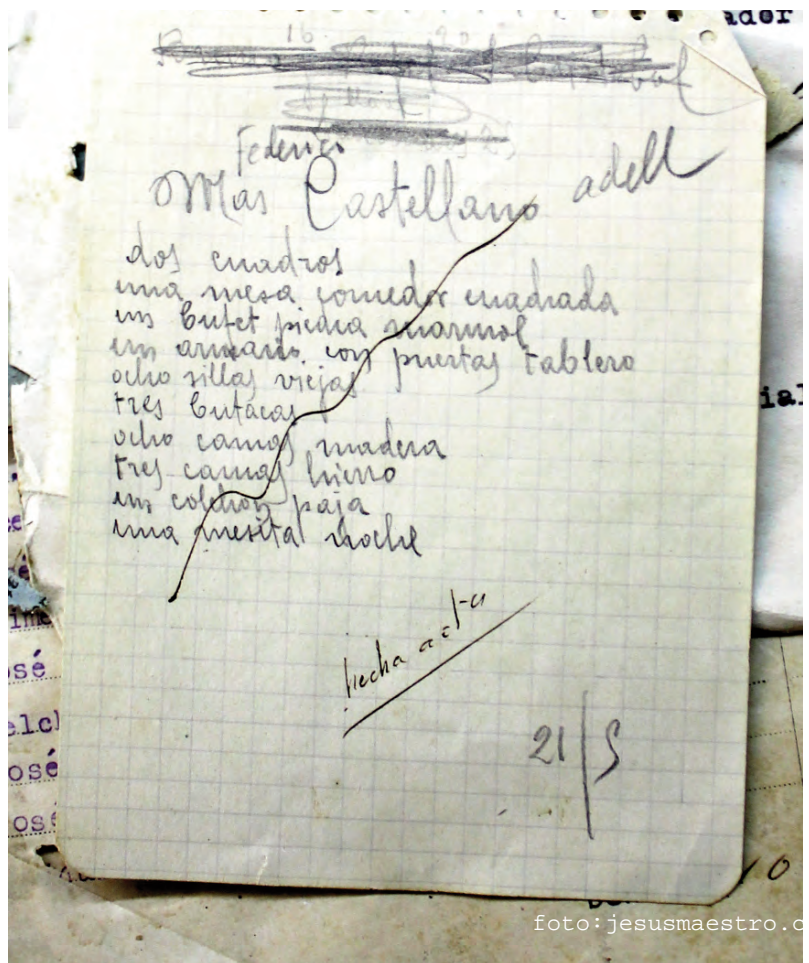 ador
Federico
Mas Castellano adell
dos cuadros
una mesa comedor cuadrada
un bufet piedra marmol
un armario con puertas tablero
ocho sillas viejas
tres butacas
ocho camas madera
tres camas hierro
un colchon paja
una mesita noche
hecha acta
21/5
ial
osé
elch
osé
osé
foto:jesusmaestro.c